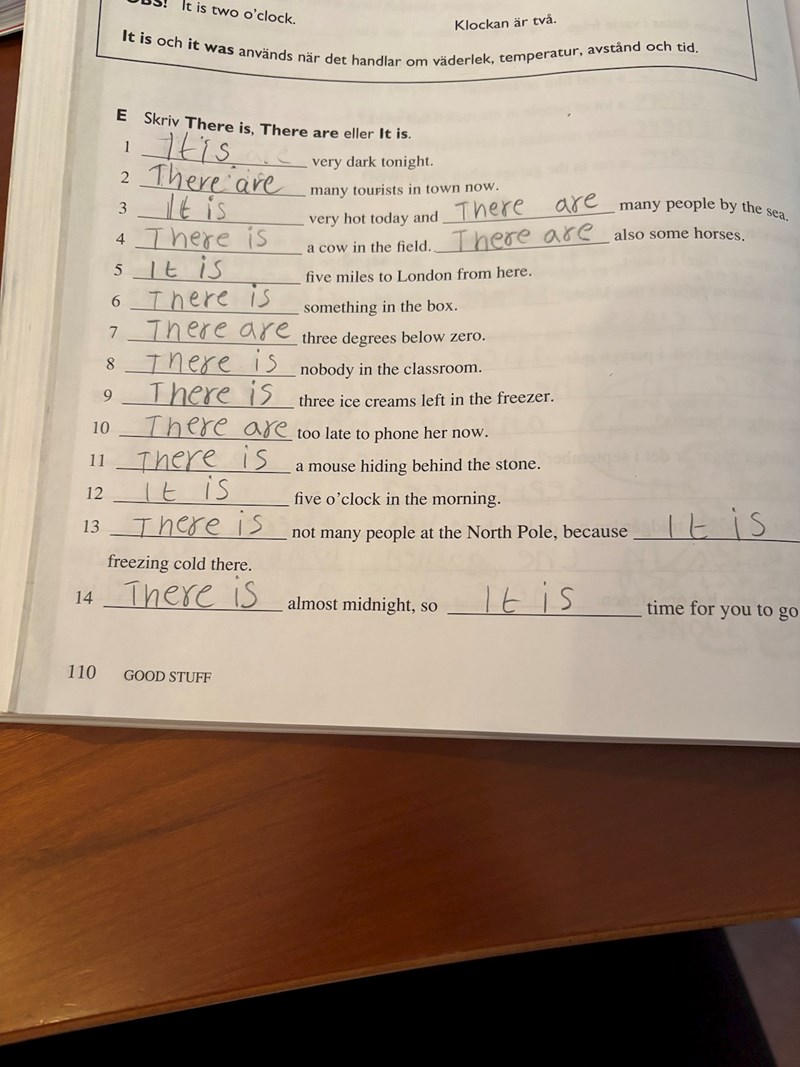 OBS! It is two o'clock. Klockan är två.
It is och it was används när det handlar om väderlek, temperatur, avstånd och tid.
E Skriv There is, There are eller It is.
1 It is very dark tonight.
2 There are many tourists in town now.
3 It is very hot today and There are many people by the sea.
4 There is a cow in the field. There are also some horses.
5 It is five miles to London from here.
6 There is something in the box.
7 There are three degrees below zero.
8 There is nobody in the classroom.
9 There is three ice creams left in the freezer.
10 There are too late to phone her now.
11 There is a mouse hiding behind the stone.
12 It is five o'clock in the morning.
13 There is not many people at the North Pole, because It is
freezing cold there.
14 There is almost midnight, so It is time for you to go
110 GOOD STUFF